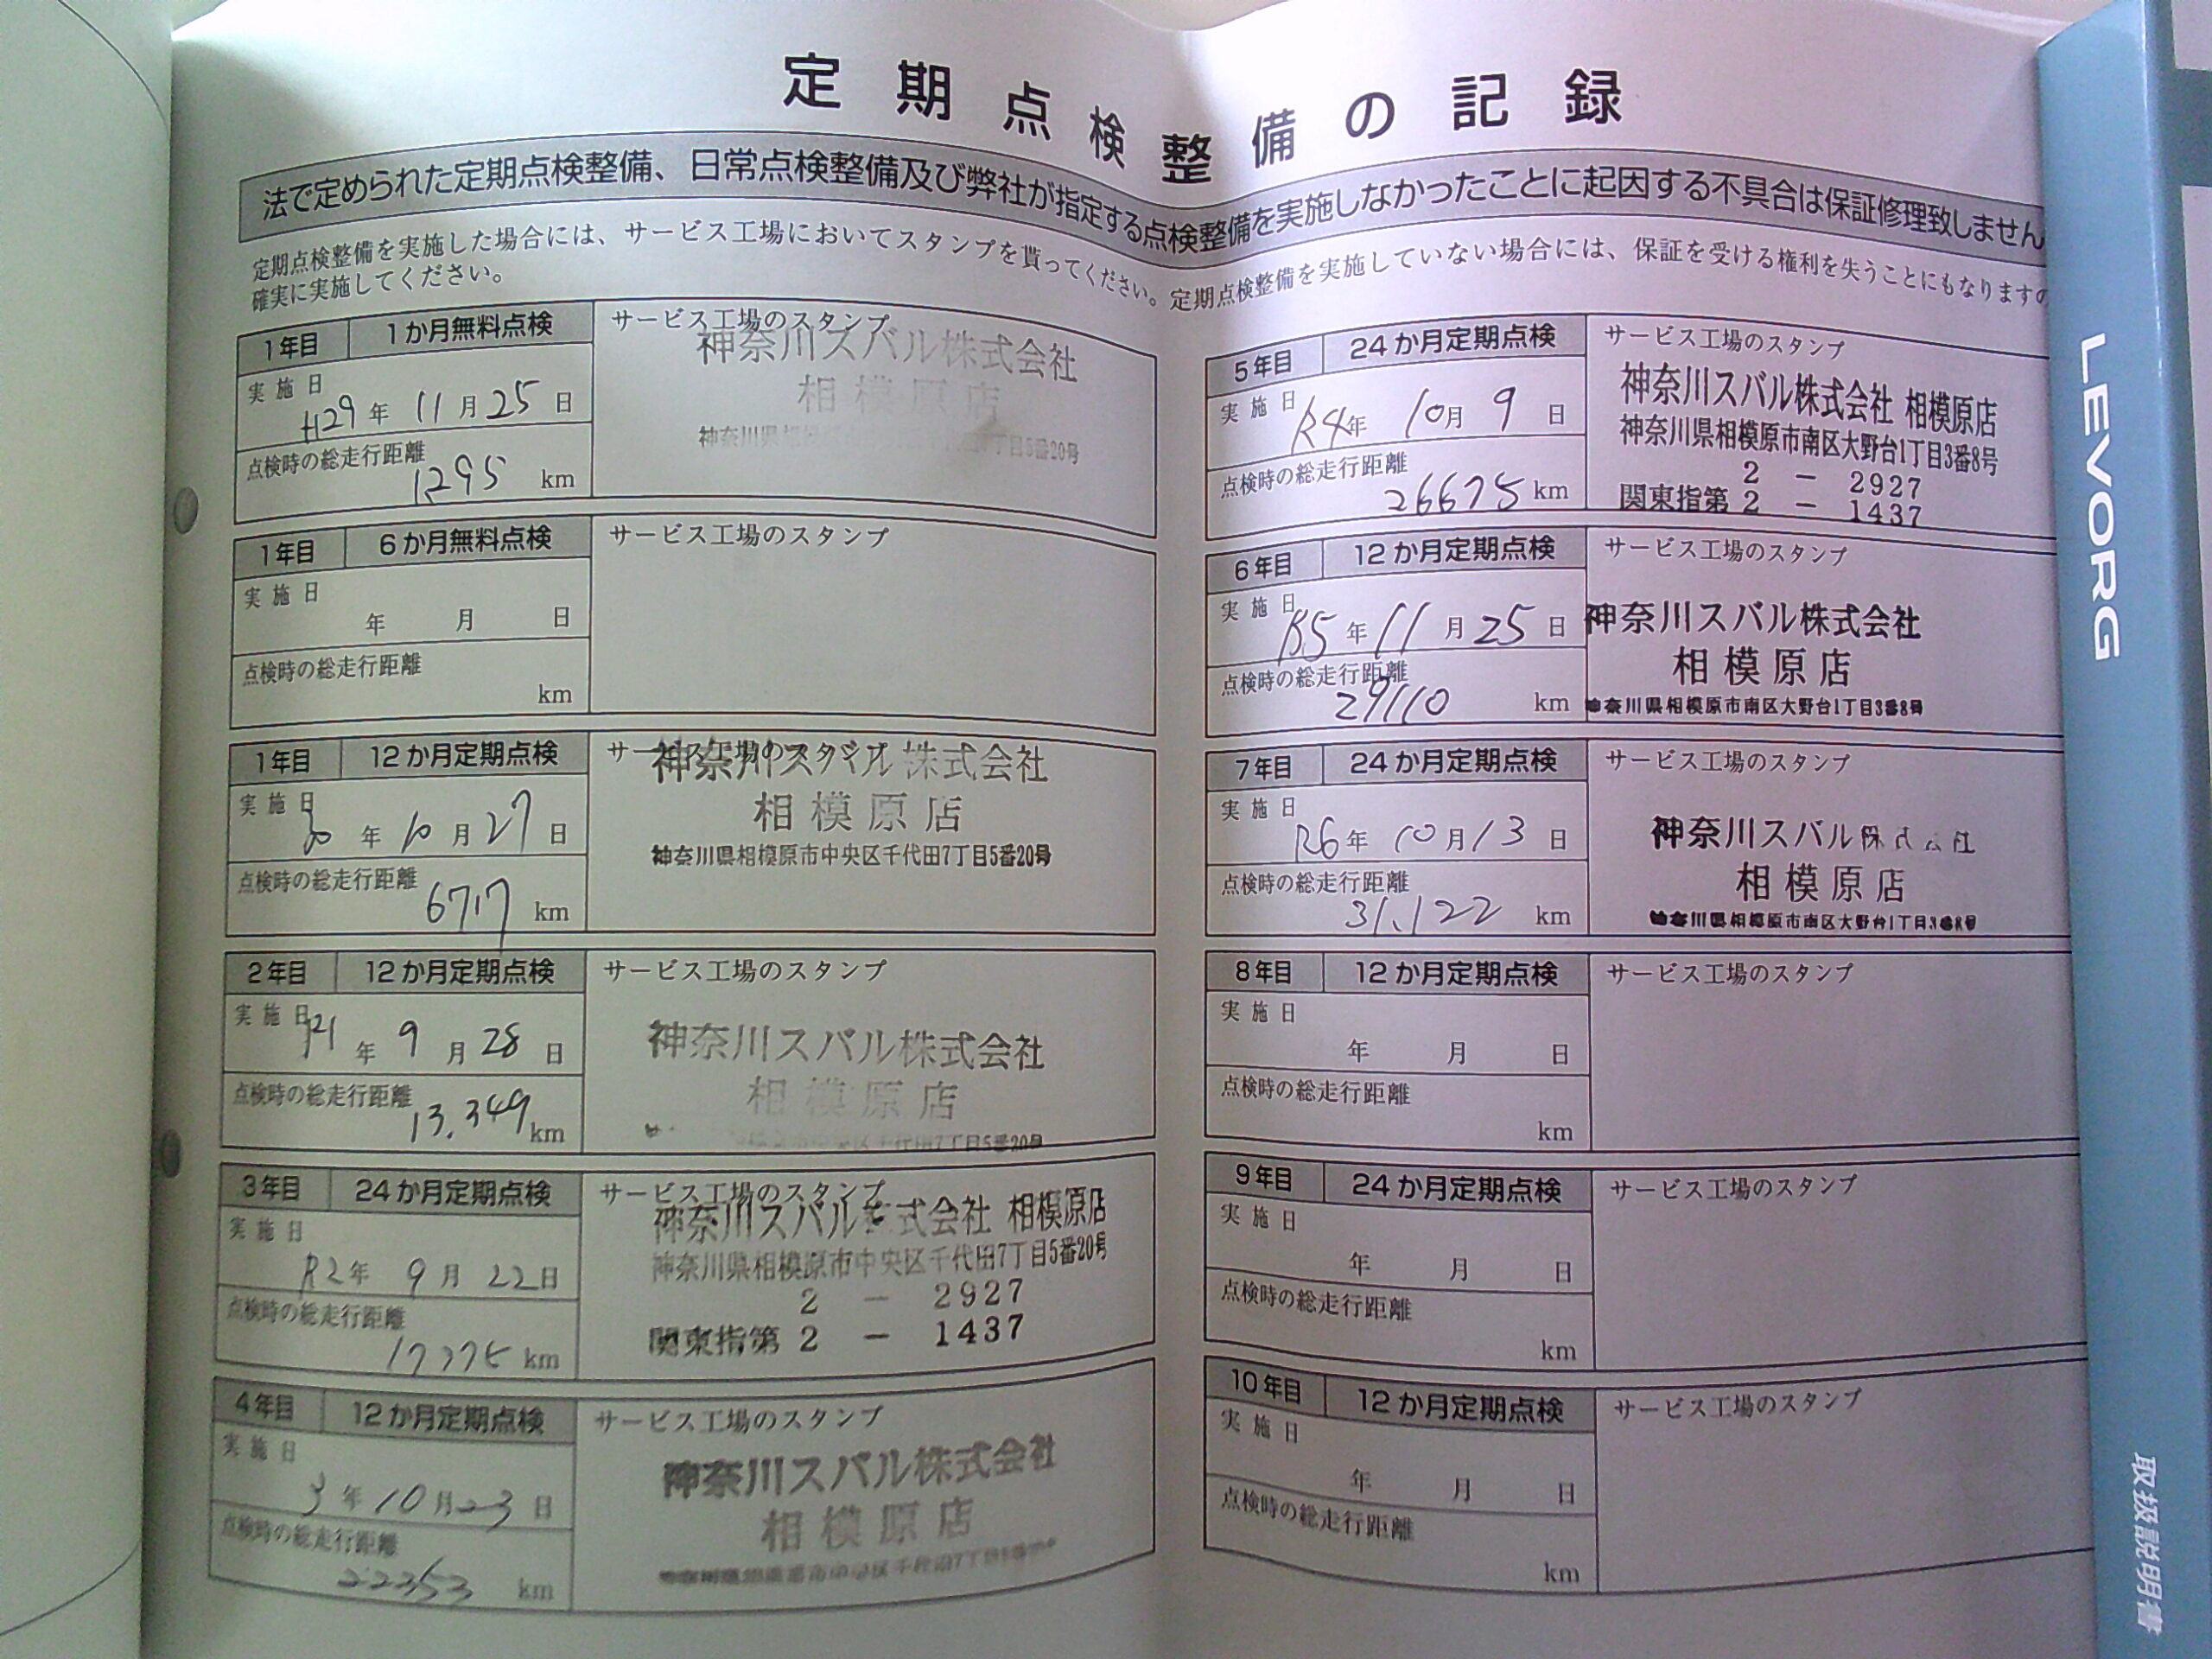 定期点検整備の記録
法で定められた定期点検整備、日常点検整備及び弊社が指定する点検整備を実施しなかったことに起因する不具合は保証修理致しません
定期点検整備を実施した場合には、サービス工場においてスタンプを貰ってください。定期点検整備を実施していない場合には、保証を受ける権利を失うことにもなりますの
確実に実施してください。
1年目 1か月無料点検
サービス工場のスタンプ
実施日
H29年 11月25日
点検時の総走行距離
1295 km
神奈川スバル株式会社
相模原店
神奈川県 丁目5番20号
1年目 6か月無料点検
サービス工場のスタンプ
実施日
年 月 日
点検時の総走行距離
km
1年目 12か月定期点検
サービス工場のスタンプ
実施日
30年 10月27日
点検時の総走行距離
6717 km
神奈川スバル株式会社
相模原店
神奈川県相模原市中央区千代田7丁目5番20号
2年目 12か月定期点検
サービス工場のスタンプ
実施日
年 9月28日
点検時の総走行距離
13.349km
神奈川スバル株式会社
相模原店
千代田7丁目5番20号
3年目 24か月定期点検
サービス工場のスタンプ
実施日
R2年 9月22日
点検時の総走行距離
km
神奈川スバル株式会社 相模原店
神奈川県相模原市中央区千代田7丁目5番20号
2 － 2927
関東指第 2 － 1437
4年目 12か月定期点検
サービス工場のスタンプ
実施日
3年10月23日
点検時の総走行距離
22353 km
神奈川スバル株式会社
相模原店
5年目 24か月定期点検
サービス工場のスタンプ
実施日
R4年 10月 9日
点検時の総走行距離
26675km
神奈川スバル株式会社 相模原店
神奈川県相模原市南区大野台1丁目3番8号
2 － 2927
関東指第 2 － 1437
6年目 12か月定期点検
サービス工場のスタンプ
実施日
R5年11月25日
点検時の総走行距離
29110 km
神奈川スバル株式会社
相模原店
神奈川県相模原市南区大野台1丁目3番8号
7年目 24か月定期点検
サービス工場のスタンプ
実施日
R6年 10月13日
点検時の総走行距離
31.122 km
神奈川スバル株式会社
相模原店
神奈川県相模原市南区大野台1丁目3番8号
8年目 12か月定期点検
サービス工場のスタンプ
実施日
年 月 日
点検時の総走行距離
km
9年目 24か月定期点検
サービス工場のスタンプ
実施日
年 月 日
点検時の総走行距離
km
10年目 12か月定期点検
サービス工場のスタンプ
実施日
年 月 日
点検時の総走行距離
km
LEVORG
取扱説明書